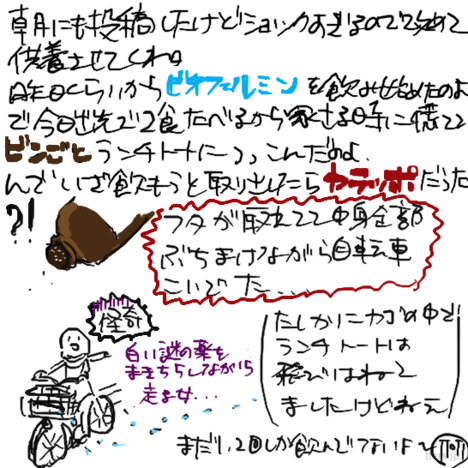 朝にも投稿したけどショックすぎるので改めて
供養させてくれ。
昨日くらいからビオフェルミンを飲み始めたのよ
で今日出先で2食たべるから家出る時に慌てて
ビンごとランチトートにつっこんだのよ。
んでいざ飲もうと取り出したらカラッポだった
?!
フタが取れてて中身全部
ぶちまけながら自転車
こいでた...
怪奇
白い謎の薬を
まきちらしながら
走る女...
たしかにカゴの中で
ランチトートは
飛びはねて
ましたけどねぇ
まだ1、2回しか飲んでないよ〜